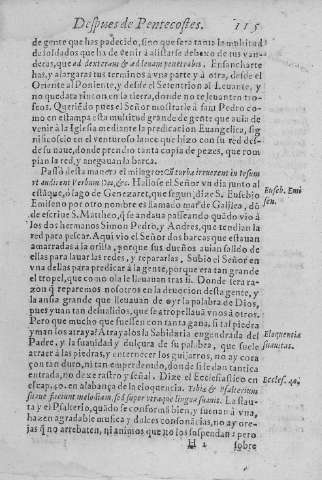 Despues de Pentecostes. 115
de gente que has padecido, sino que sera tanta la multitud
de soldados que ha de venir à alistarse debaxo de tus van-
deras, que ad dexteram & ad leuam penetrabis. Ensancharte
has, y alargaràs tus terminos à vna parte y à otra, desde el
Oriente al Poniente, y desde el Setentrion al Leuante, y
no quedara rincon en la tierra, donde no te leuanten tro-
feos. Queriẽdo pues el Señor mostrarle à sant Pedro co-
mo en estampa esta multitud grande de gente que auia de
venir à la Iglesia mediante la predicacion Euangelica, sig
nificoselo en el venturoso lance que hizo con su red des-
de su naue, donde prendio tanta copia de pezes, que rom
pian la red, y anegauan la barca.
Passò desta manera el milagro: Cũ turbæ irruerent in Iesum
vt audirent Verbum Dei, &c. Hallose el Señor vn dia junto al
estãque, ò lago de Genezaret, que segun dize S. Eusebio
Emiseno por otro nombre es llamado mar de Galilea, dõ
de escriue S. Mattheo, q̃ se andaua passeando quãdo vio à
los dos hermanos Simon Pedro, y Andres, que tendian la
red para pescar. Aqui vio el Señor dos barcas que estauan
amarradas à la orilla, porque sus dueños auian salido de
ellas para lauar las redes, y repararlas. Subio el Señor en
vna dellas para predicar à la gente, porque era tan grande
el tropel, que como ola le lleuauan tras si. Donde sera ra-
zon q̃ reparemos nosotros en la deuocion desta gente, y
la ansia grande que lleuauan de oyr la palabra de Dios,
pues yuan tan desualidos, que se atropellauã vnos à otros.
Pero que mucho que fuessen con tanta gana, si tal piedra
yman los atraya? Atrayalos la Sabiduria engendrada del
Padre, y la suauidad y dulçura de su palabra, que suele
atraer à las piedras, y enternecer los guijarros, no ay cora
çon tan duro, ni tan empedernido, donde si le dan tantica
entrada, no dexe rastro y señal. Dize el Ecclesiastico en
el cap. 40. en alabança de la eloquencia. Tibiæ & Psalterium
suaue faciunt melodiam, sed super vtraque lingua suauis. La flau-
ta y el Psalterio, quãdo se conforma bien, y suenan à vna,
hazen agradable musica y dulces consonãcias, no ay ore-
jas q̃ no arrebaten, ni animos que no los suspendan: pero
H 2 sobre
Euseb. Emi
sen.
Eloquencia
suauitas.
Eccles. 40.